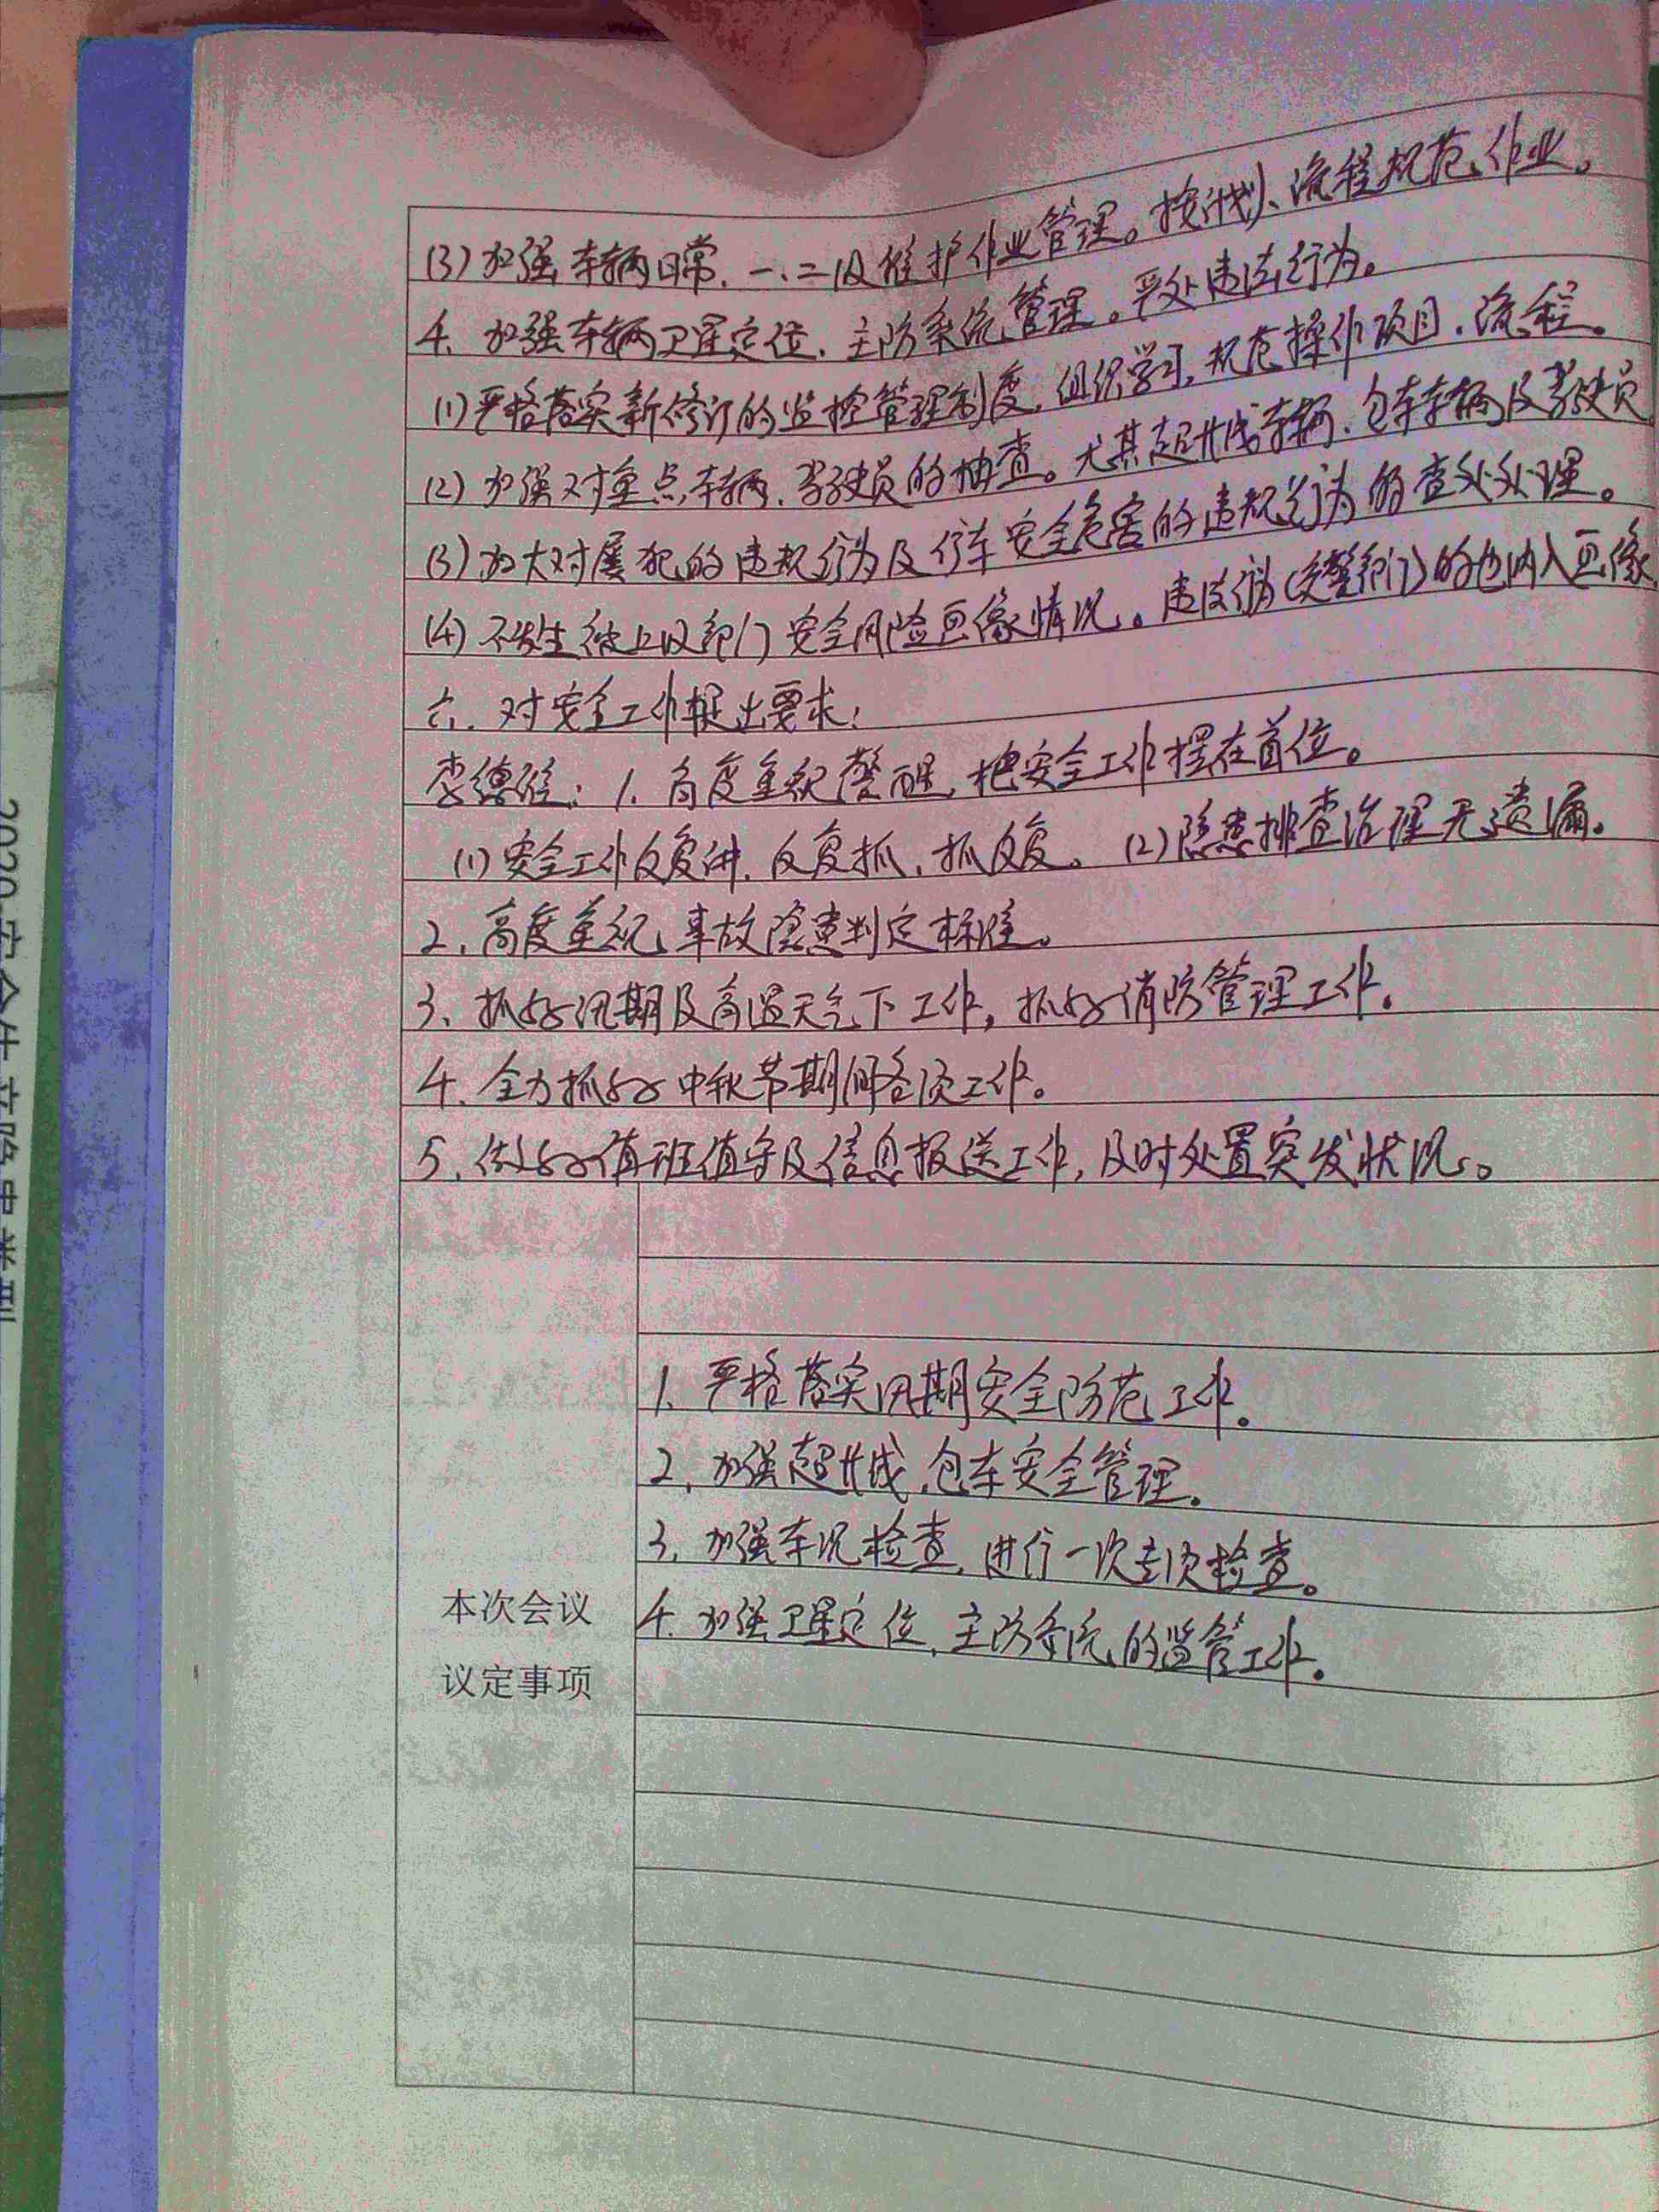 (3)加强车辆日常、一、二级维护作业管理。按计划、流程规范作业。
4、加强车辆卫星定位、主防系统管理。严处违法行为。
(1)严格落实新修订的监控管理制度,组织学习,规范操作项目、流程。
(2)加强对重点车辆、驾驶员的抽查。尤其超廿线车辆、包车车辆及驾驶员
(3)加大对屡犯的违规行为及行车安全危害的违规行为的查处处理。
(4)不发生被上级部门安全风险画像情况。违法行为(交警部门)的也纳入画像
六、对安全工作提出要求:
李德胜:1、高度重视警醒,把安全工作摆在首位。
(1)安全工作反复讲、反复抓、抓反复。(2)隐患排查治理无遗漏。
2、高度重视事故隐患判定标准。
3、抓好汛期及高温天气下工作,抓好消防管理工作。
4、全力抓好中秋节期间各项工作。
5、做好值班值守及信息报送工作,及时处置突发状况。
本次会议
议定事项
1、严格落实汛期安全防范工作。
2、加强超廿线、包车安全管理。
3、加强车况检查,进行一次专项检查。
4、加强卫星定位、主防系统的监管工作。